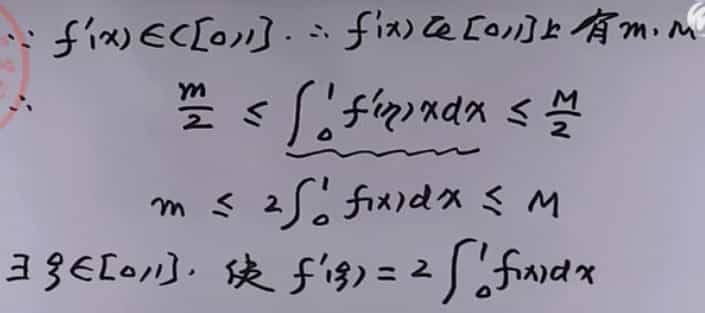 ∵ f'(x)∈C[0,1]. ∴ f'(x)在[0,1]上有m.M
∴ m/2 ≤ ∫₀¹ f'(η)xdx ≤ M/2
m ≤ 2∫₀¹ f(x)dx ≤ M
∃ξ∈[0,1]. 使 f'(ξ) = 2∫₀¹f(x)dx